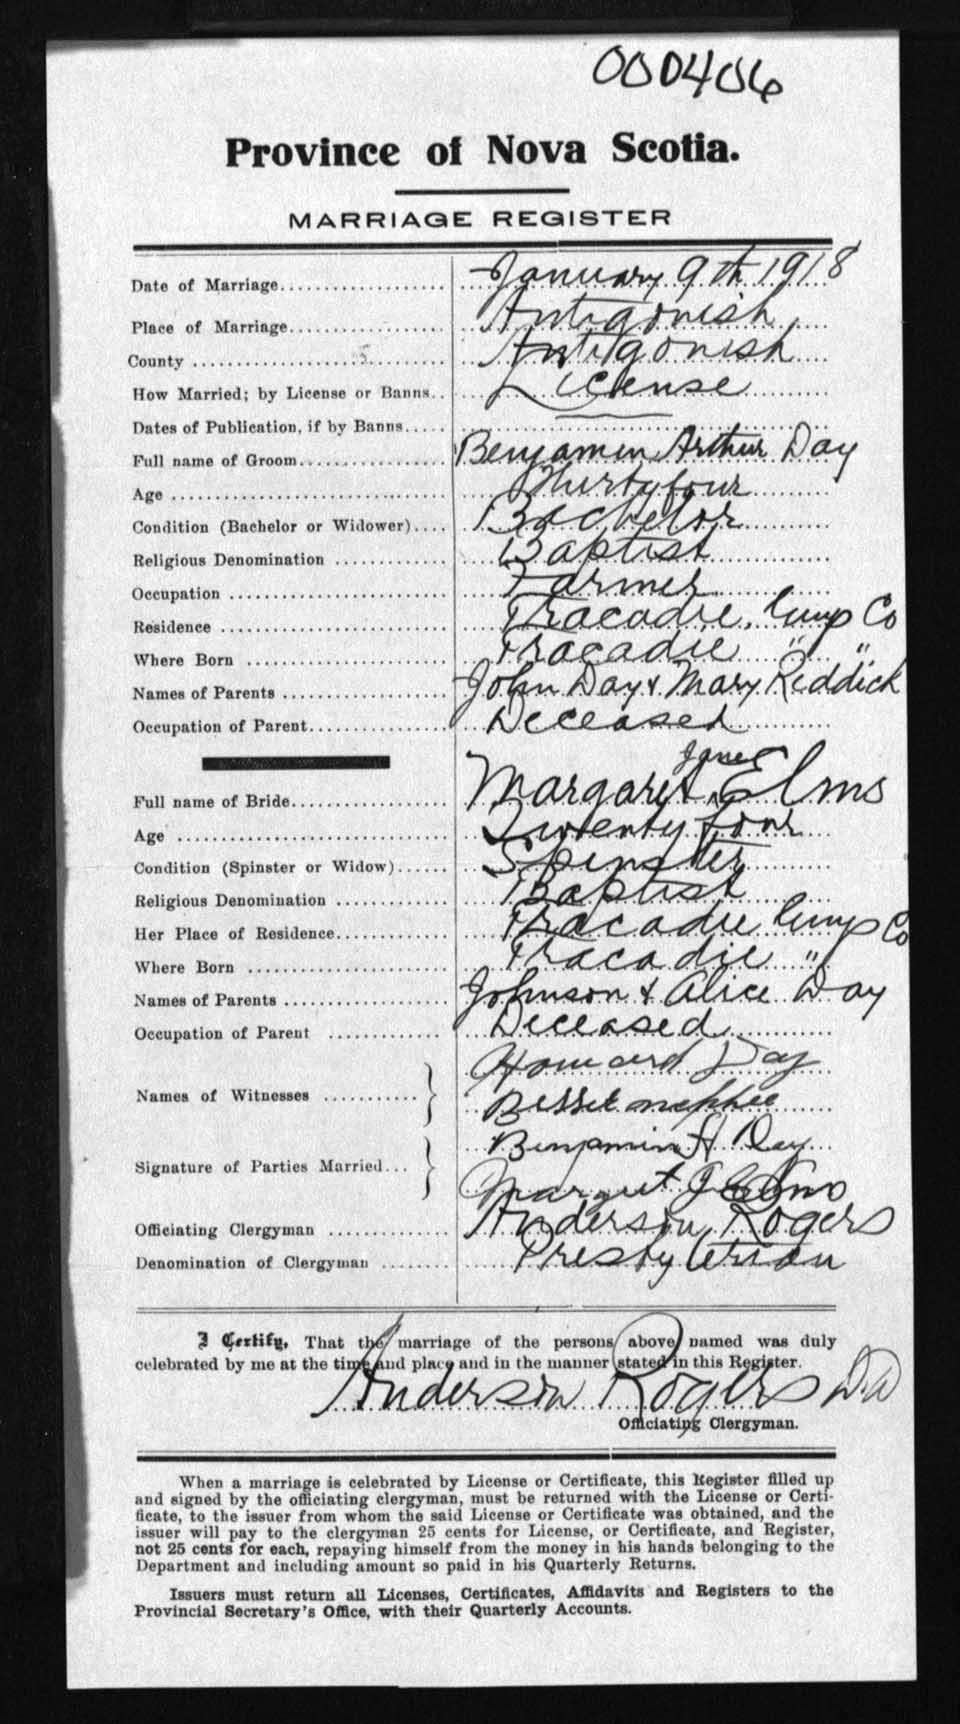 000406
Province of Nova Scotia.
MARRIAGE REGISTER
Date of Marriage.................... January 9th 1918
Place of Marriage................... Antigonish
County ......................... Antigonish
How Married; by License or Banns.. License
Dates of Publication, if by Banns.....
Full name of Groom.................. Benjamin Arthur Day
Age ................................ Thirty four
Condition (Bachelor or Widower).... Bachelor
Religious Denomination ............. Baptist
Occupation ......................... Farmer
Residence .......................... Tracadie, Guys Co
Where Born ......................... Tracadie " "
Names of Parents ................... John Day & Mary Reddick
Occupation of Parent................ Deceased
Full name of Bride.................. Margaret Jane Elms
Age ................................ Twenty four
Condition (Spinster or Widow)...... Spinster
Religious Denomination ............. Baptist
Her Place of Residence............. Tracadie Guys Co
Where Born ......................... Tracadie "
Names of Parents ................... Johnson & Alice Day
Occupation of Parent ............... Deceased
Howard Day
Names of Witnesses ...........
Bessie
Benjamin Day
Signature of Parties Married...
Margret J Elms
Officiating Clergyman ............. Anderson Rogers
Denomination of Clergyman ........ Presbyterian
I Certify, That the marriage of the persons above named was duly
celebrated by me at the time and place and in the manner stated in this Register.
Anderson Rogers D.D
Officiating Clergyman.
When a marriage is celebrated by License or Certificate, this Register filled up
and signed by the officiating clergyman, must be returned with the License or Certi-
ficate, to the issuer from whom the said License or Certificate was obtained, and the
issuer will pay to the clergyman 25 cents for License, or Certificate, and Register,
not 25 cents for each, repaying himself from the money in his hands belonging to the
Department and including amount so paid in his Quarterly Returns.
Issuers must return all Licenses, Certificates, Affidavits and Registers to the
Provincial Secretary's Office, with their Quarterly Accounts.